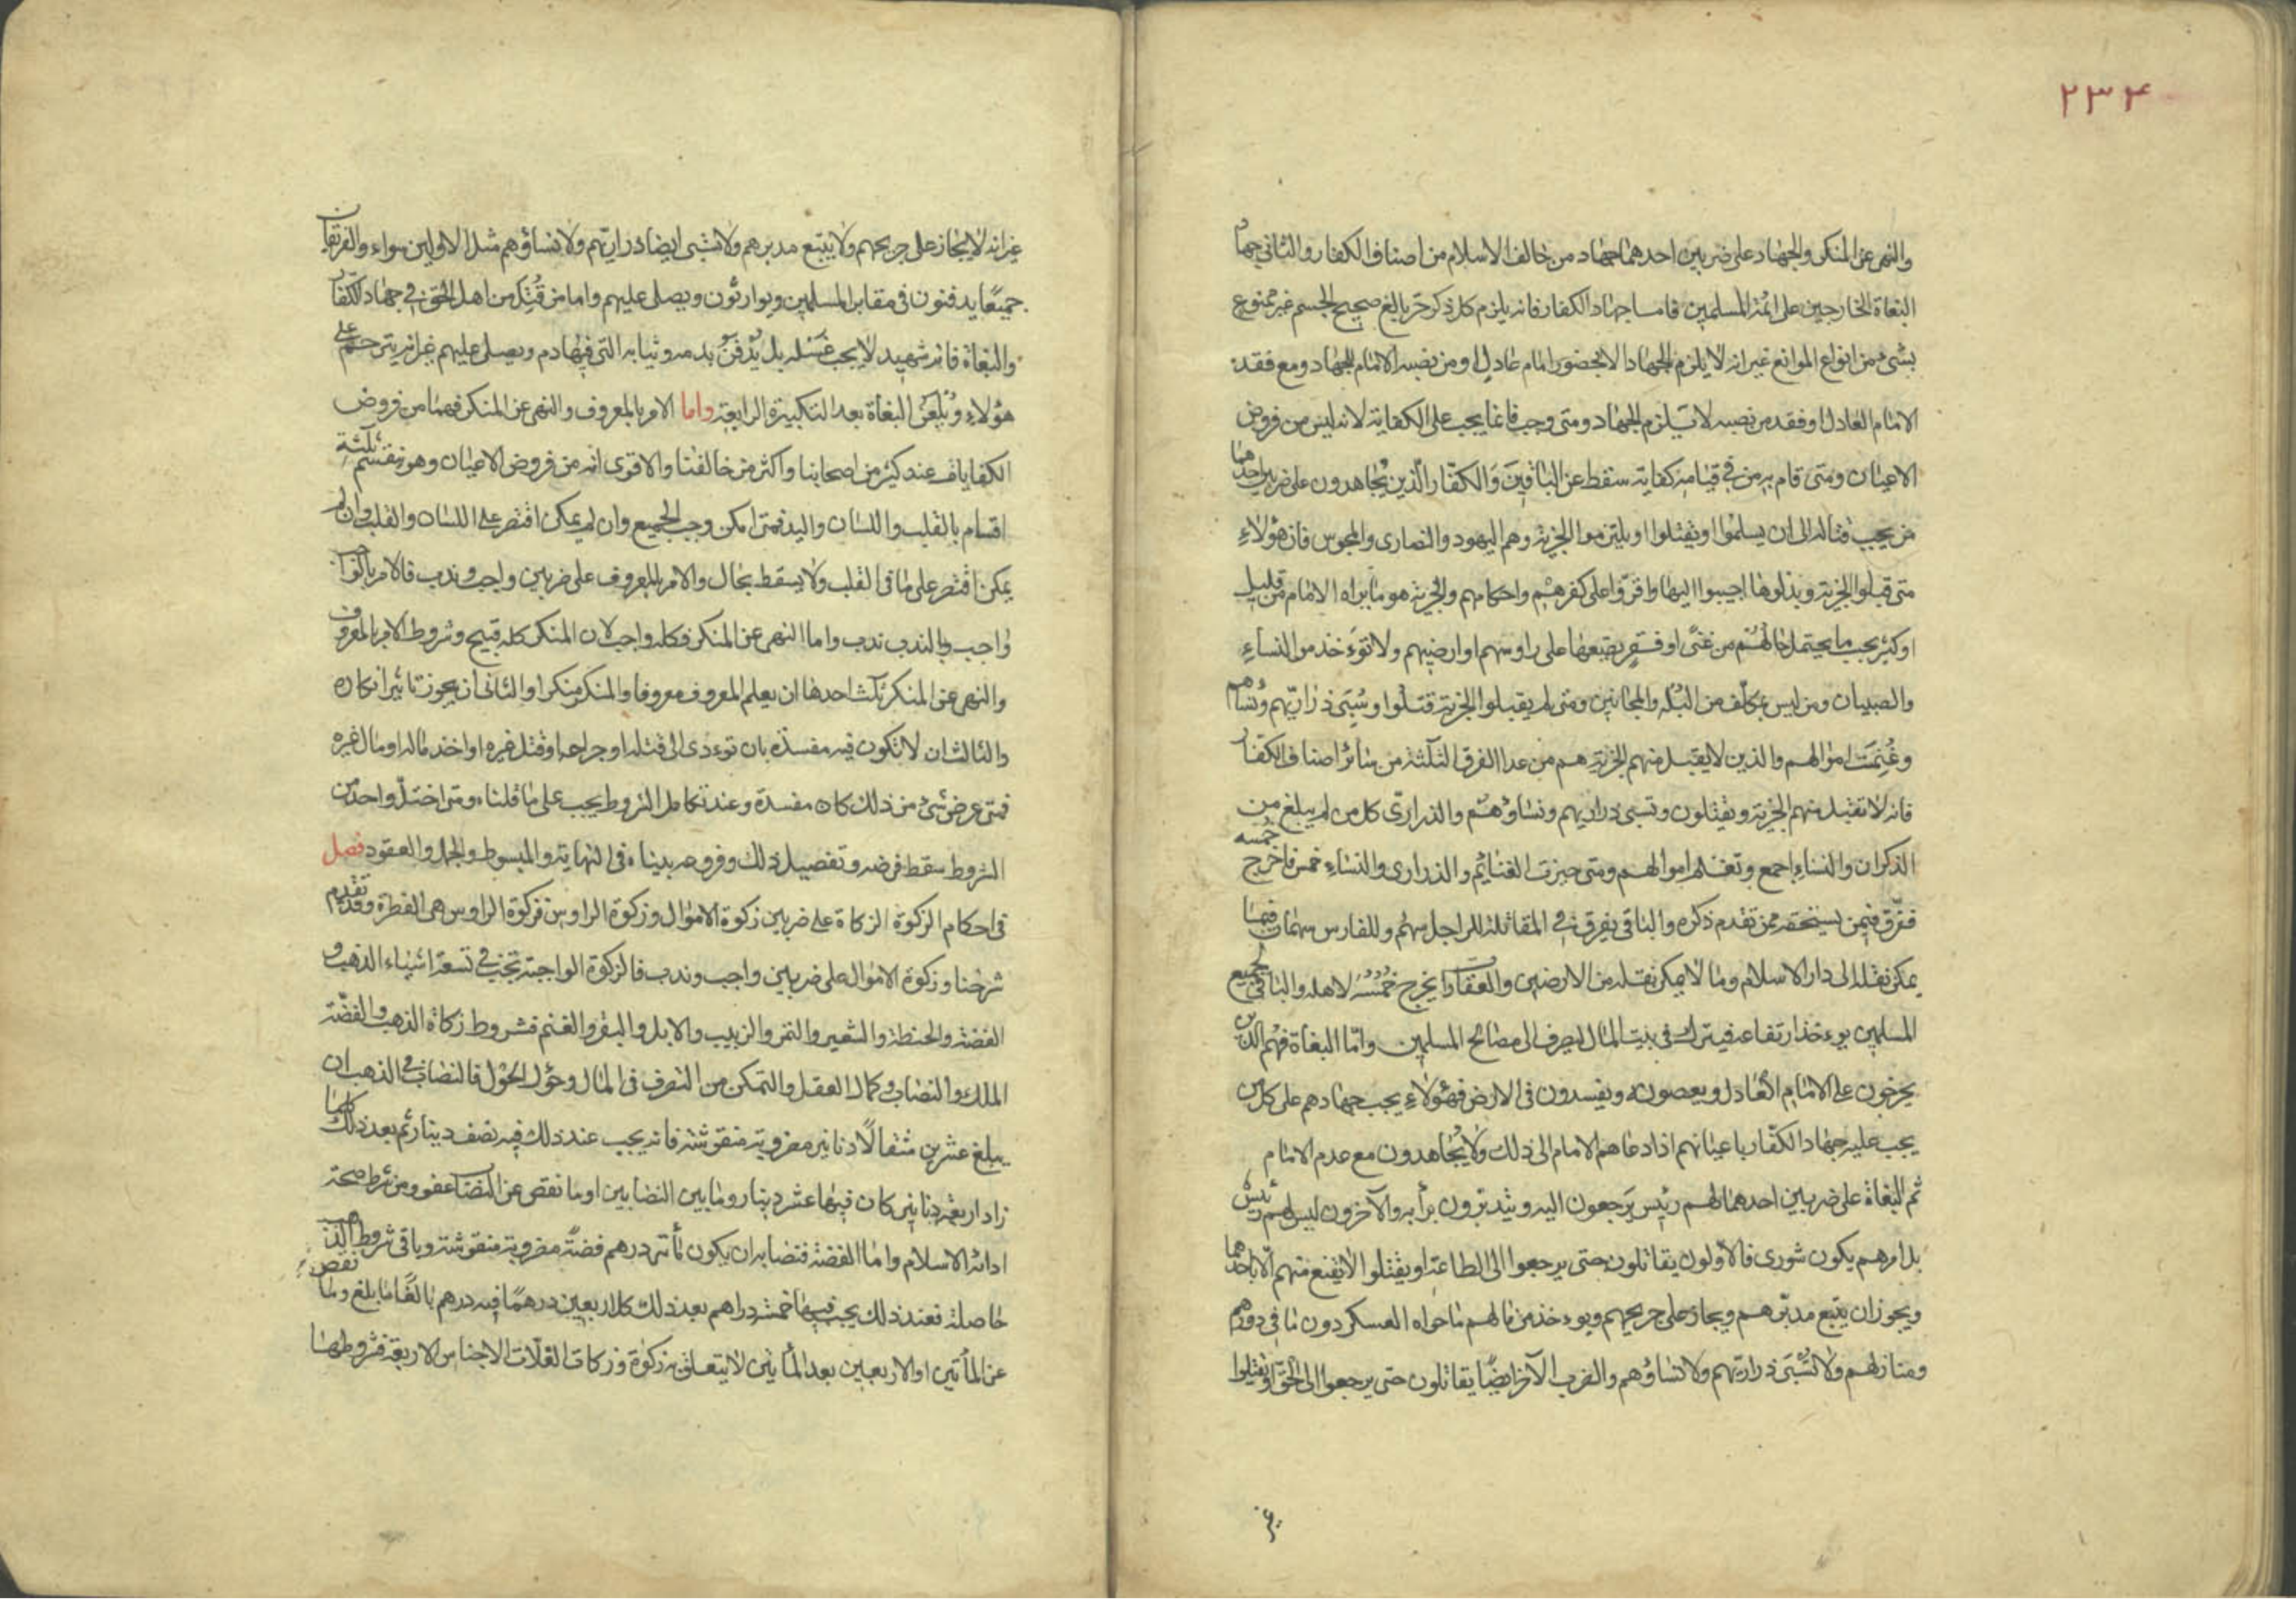 ۲۳۴
والنهى عن المنكر والجهاد على ضربين احدهما جهاد من خالف الاسلام من اصناف الكفار والثانى جهاد
البغاة الخارجين على ائمة المسلمين فاما جهاد الكفار فانه يلزم كل ذكر حر بالغ صحيح الجسم غير ممنوع
بشىء من انواع الموانع غير انه لا يلزم الجهاد الا بحضور امام عادل او من نصبه الامام للجهاد ومع فقد
الامام العادل او فقد من نصبه لا يلزم الجهاد ومتى وجب فانما يجب على الكفاية لانه ليس من فروض
الاعيان ومتى قام به من فى قيامه كفاية سقط عن الباقين والكفّار الّذين يُجاهدون على ضربين احدهما
من يجب قتاله الى ان يسلموا او يقتلوا او يلتزموا الجزية وهم اليهود والنصارى والمجوس فان هؤلاءِ
متى قبلوا الجزية وبذلوها اجيبوا اليها واقرّوا على كفرهم واحكامهم والجزية هو ما يراه الامام من قليل
او كثير يجب ما يحتمل حالهم من غنىً او فقر يضعها على راوسهم او ارضيهم ولا توءخذ من النساءِ
والصبيان ومن ليس بمكلّف من البُله والمجانين ومتى لم يقبلوا الجزية قتلوا وسُبَى ذراريّهم ونساؤهم
وغُنِمَت اموالهم والذين لا يقبل منهم الجزية هم من عدا الفرق الثلثة من سائر اصناف الكفّار
فانه لا تقبل منهم الجزية ويقتلون وتسبى ذراريهم ونساؤهم والذرارىّ كل من لم يبلغ من
الذكران والنساءِ اجمع وتغنم اموالهم ومتى حيزت الغنايم والذرارى والنساءِ خمس فاخرج خمسه
ففرّق فيمن يستحقه ممن تقدم ذكره والباقى يفرق فى المقاتلة للراجل سهم وللفارس سهمان فيما
يمكن نقله الى دار الاسلام وما لا يمكن نقله من الارضين والعقارات يخرج خُمُسُه لاهله والباقى لجميع
المسلمين يوءخذ ارتفاعه فيترك فى بيت المال ليصرف الى مصالح المسلمين وامّا البغاة فهُم الذين
يخرجون على الامام العادل ويعصونه ويفسدون فى الارض فهؤلاءِ يجب جهادهم على كل من
يجب عليه جهاد الكفّار باعيانهم اذا دعاهم الامام الى ذلك ولا يُجاهدون مع عدم الامام
ثم البغاة على ضربين احدهما لهم رئيس يرجعون اليه ويتدبّرون برأيه والآخرون ليس لهم رئيس
بل امرهم يكون شورى فالاولون يقاتلون حتى يرجعوا الى الطاعة او يقتلوا لا يقنع منهم الّا باحدهما
ويجوز ان يتبع مدبرهم ويجاز على جريحهم ويوءخذ من مالهم ما حواه العسكر دون ما فى دورهم
ومنازلهم ولا تُسْبَى ذراريّهم ولا نساؤهم والضرب الآخر ايضًا يقاتلون حتى يرجعوا الى الحق او يقتلوا
غير
غير انه لا يجاز على جريحهم ولا يتبع مدبرهم ولا تسبى ايضا ذراريّهم ولا نساؤهم مثل الاولين سواء والفرتقان
جميعًا يدفنون فى مقابر المسلمين ويوارثون ويصلى عليهم واما من قُتِل من اهل الحق فى جهاد الكفّار
والبغاة فانه شهيد لا يجب غسله بل يُدْفَن بدمه وثيابه التى فيها دم ويصلى عليهم غير انه يترحم على
هؤلاءِ ويُلعَن البغاة بعد التكبيرة الرابعة واما الامر بالمعروف والنهى عن المنكر فهما من فروض
الكفايات عند كثير من اصحابنا واكثر من خالفنا والاقوى انه من فروض الاعيان وهو ينقسم ثلثة
اقسام بالقلب واللسان واليد فمتى امكن وجب الجميع وان لم يمكن اقتصر على اللسان والقلب وان لم
يمكن اقتصر على ما فى القلب ولا يسقط بحال والامر بالمعروف على ضربين واجب وندب فالامر بالواجب
واجب وبالندب ندب واما النهى عن المنكر فكله واجب لان المنكر كله قبيح وشروط الامر بالمعروف
والنهى عن المنكر ثلث احدها ان يعلم المعروف معروفا والمنكر منكرا والثانى ان يجوز تاثير انكاره
والثالث ان لا تكون فيه مفسدة بان توءدى الى قتله او جراحه او قتل غيره او اخذ ماله او مال غيره
فمتى عرض شىء من ذلك كان مفسدة وعند تكامل الشروط يجب على ما قلناه ومتى اختلّ واحد من
الشروط سقط فرضه وتفصيل ذلك وفروعه بيناه فى النهاية والمبسوط والجمل والعقود فصل
فى احكام الزكوة الزكاة على ضربين زكوة الاموال وزكوة الراوس فزكوة الراوس هى الفطرة وقد تقدم
شرحنا وزكوة الاموال على ضربين واجب وندب فالزكوة الواجبة تجب فى تسعة اشياء الذهب و
الفضة والحنطة والشعير والتمر والزبيب والابل والبقر والغنم فشروط زكاة الذهب والفضّة
الملك والنصاب وكمال العقل والتمكن من التصرف فى المال وحؤل الحؤل فالنصاب فى الذهب ان
يبلغ عشرين مثقالًا دنانير مضروبة منقوشة فانه يجب عند ذلك فيه نصف دينار ثم بعد ذلك كلما
زاد اربعة دنانير كان فيها عشر دينار وما بين النضابين او ما نقص عن النصاب عفو ومن شرط صحة
ادائه الاسلام واما الفضة فنصابه ان يكون مأتى درهم فضةً مضروبة منقوشة وباقى شروط الذهب
حاصلة فعند ذلك يجب فيها خمسة دراهم بعد ذلك كل اربعين درهمًا فيه درهم بالغًا ما بلغ وما نقص
عن المأتين او الاربعين بعد المأتين لا يتعلق به زكوة وزكات الغلّات الاجناس الاربعة فشروطها